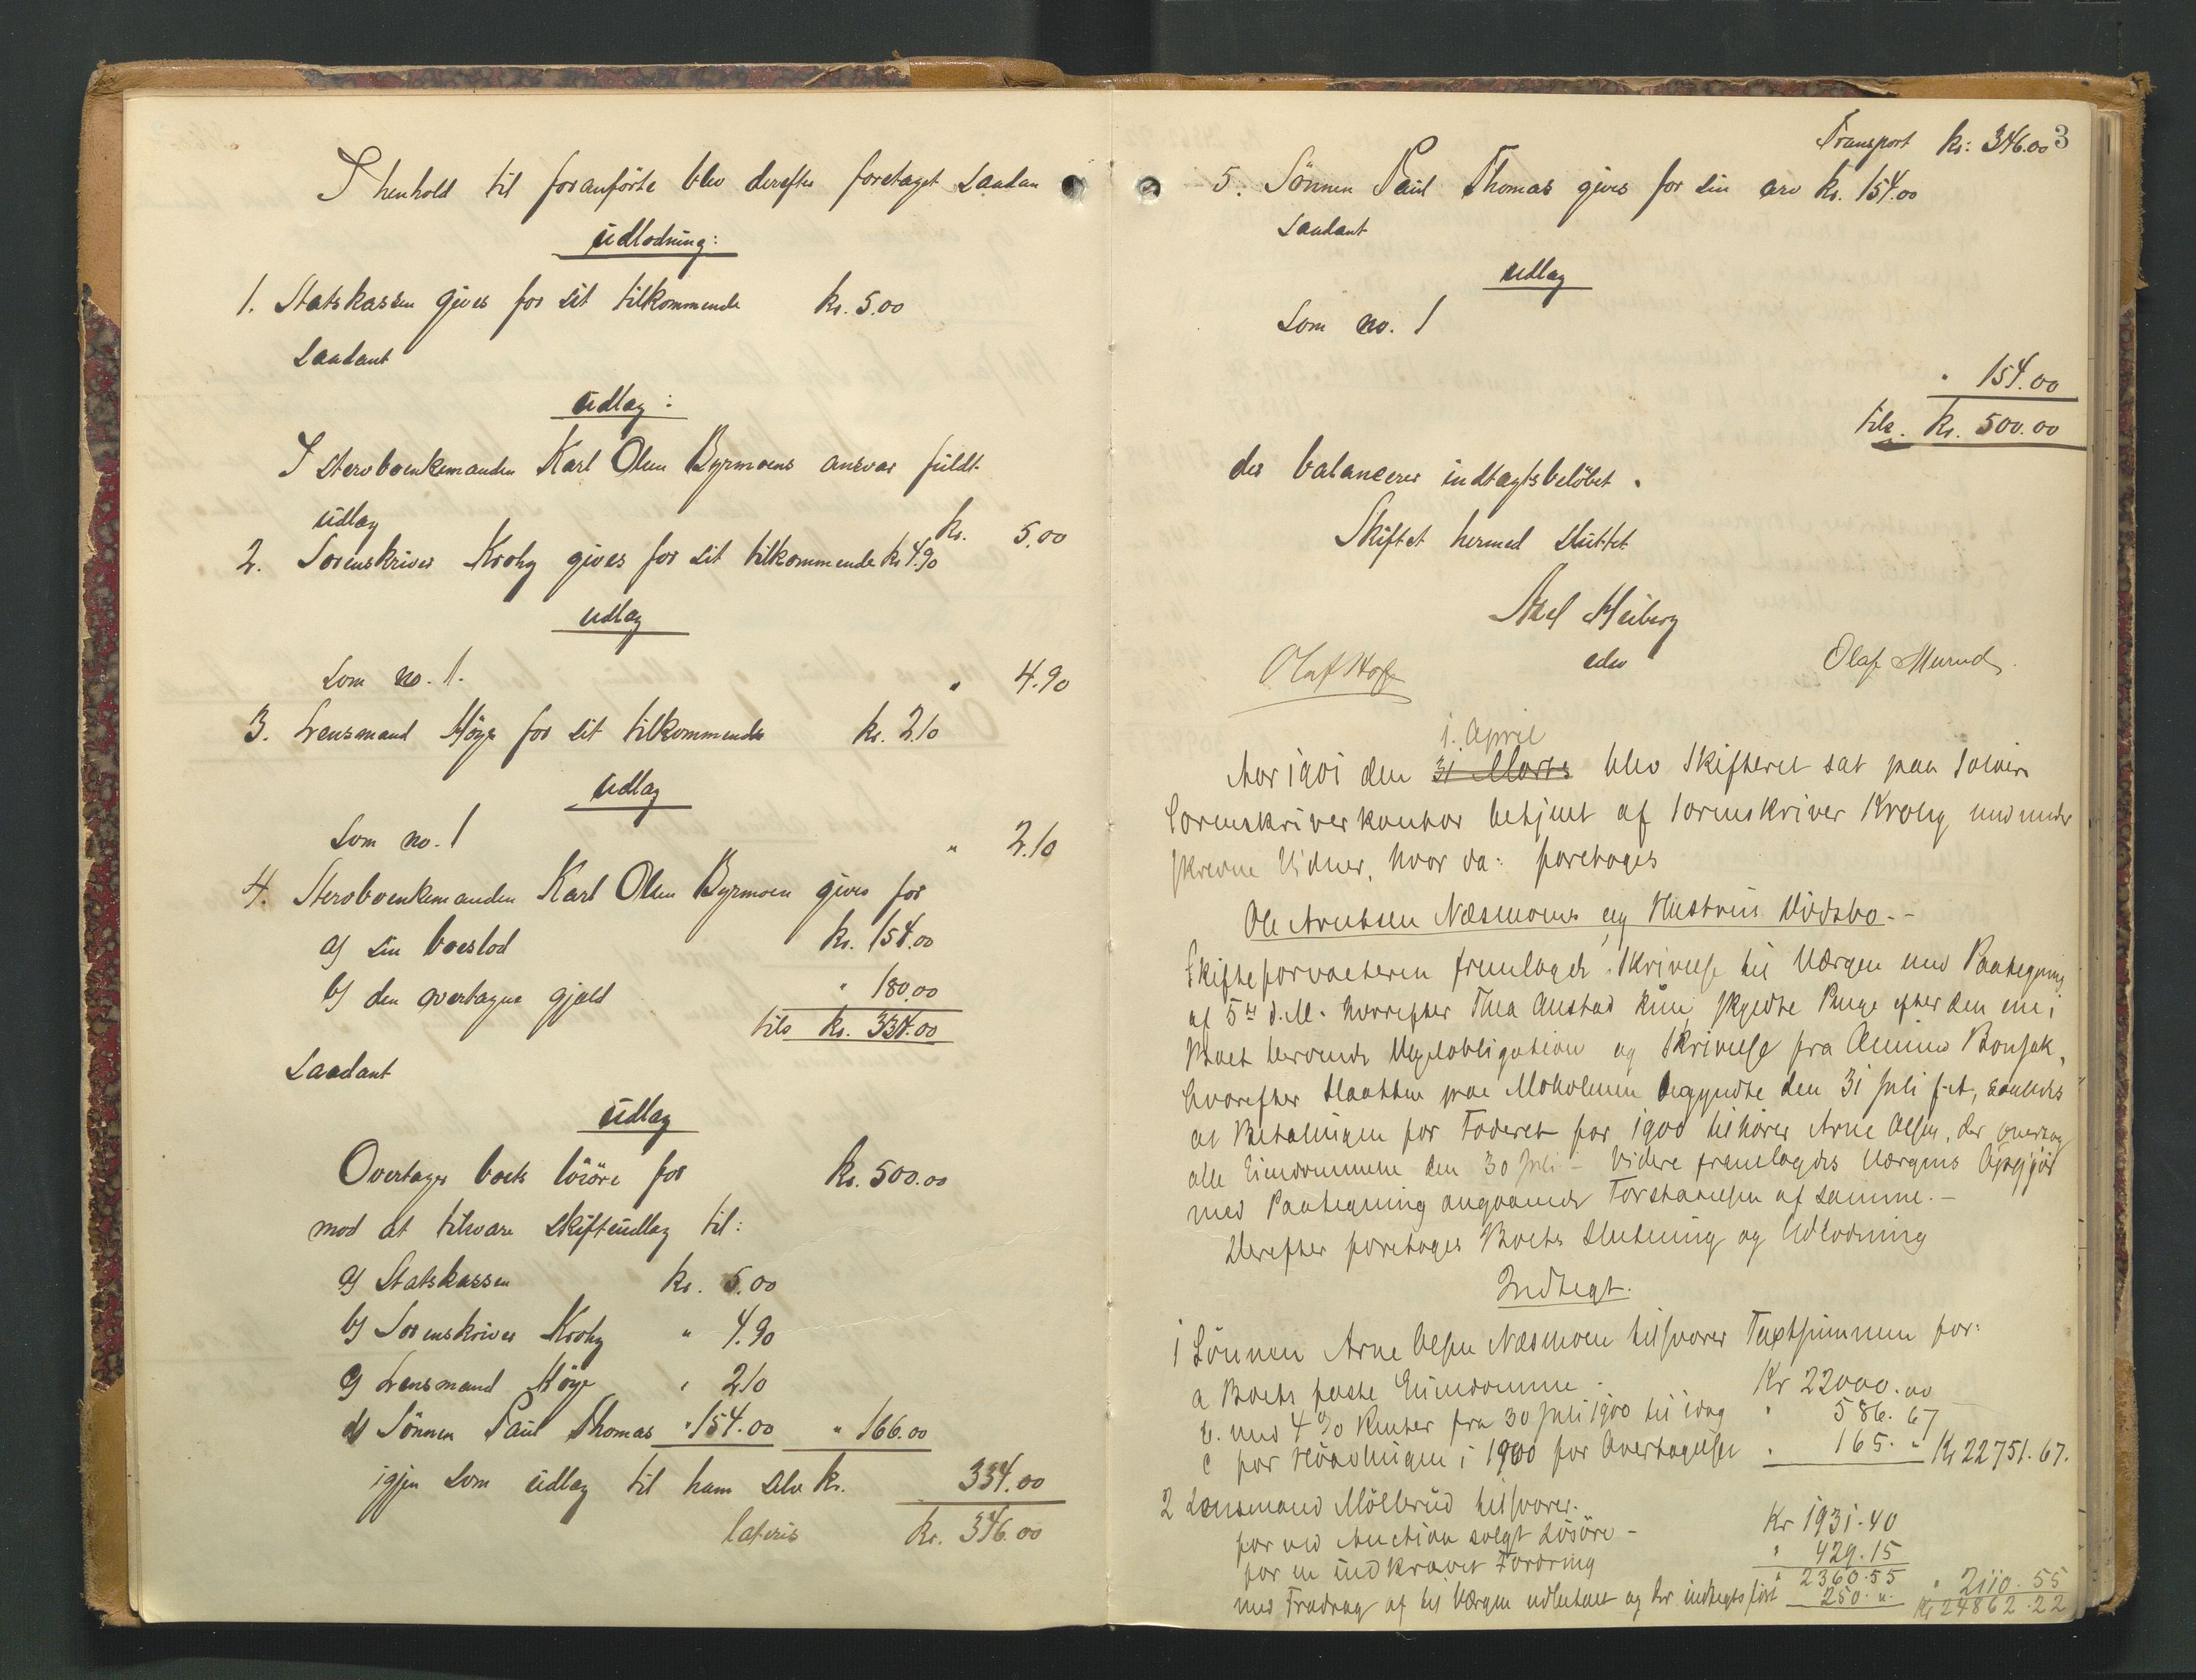 I henhold til foranförte blev derefter foretaget saadan
udlodning:
1. Statskassen gives for sit tilkommende kr. 5.00
saadant
udlag:
I stervboenkemanden Karl Olsen Byrmoens ansvar fuldt
udlag kr. 5.00
2. Sorenskriver Krohg gives for sit tilkommende kr 4.90
udlag
som no. 1. " 4.90
3. Lensmand Höye for sit tilkommende kr. 2.10
udlag
som no. 1 " 2.10
4. Stervboenkemanden Karl Olsen Byrmoen gives for
a) sin boeslod kr. 154.00
b) den overtagne gjæld " 180.00
tils kr. 334.00
saadant
udlag
Overtager boets lösöre for kr. 500.00
mod at tilsvare skifteudlag til:
a) Statskassen kr. 5.00
b) Sorenskriver Krohg " 4.90
c) Lensmand Höye " 2.10
d) Sönnen Paul Thomas " 154.00 " 166.00
igjen som udlag til ham selv kr. 334.00
lateris kr. 346.00
3
Transport kr. 346.00
5. Sönnen Paul Thomas gives for sin arv kr. 154.00
saadant
udlag
som no. 1
" 154.00
tils. kr. 500.00
der balancerer indtægtsbelöbet.
Skiftet hermed sluttet
Axel Heiberg
edsv
Olaf Hof Olaf Murud
1. April
Aar 1901 den 31 Marts blev Skifteret sat paa Solørs
Sorenskriverkontor betjent af Sorenskriver Krohg med under
skrevne Vidner, hvor da: foretoges
Ole Arntsen Næsmoens og Hustrus Dødsbo.-
Skifteforvalteren fremlagde Skrivelse til Værgen med Paategning
af 5te d.M. hvorefter Thea Austad kun skyldte Penge efter den ene i
Boet beroende Obligation og Skrivelse fra
hvorefter Slaatten paa Moholmen begyndte den 31 Juli f.A, saaledes
at Betalingen for Foderet for 1900 tilhører Arne Olsen, der overtog
alle Eiendommene den 30 Juli - Videre fremlagdes Værgens Opgjør
med Paategning angaaende Forstaaelsen af samme.-
Derefter foretoges Boets Slutning og Udlodning
Indtægt.
1 Sönnen Arne Olsen Næsmoen tilsvarer Taxtsummen for:
a Boets faste Eiendomme - Kr 22000.00
b. med 4% Renter fra 30 Juli 1900 til idag " 586.67
c for i 1900 for Overtagelsen " 165. " Kr 22751.67.
2 Lensmand Möllerud tilsvarer.
for ved Auction solgt Lösöre - Kr 1931.40
for en indkrævet Fordring " 429.15
" 2360.55
med Fradrag af til Værgen udbetalt og her indtægtsført 250. " " 2110.55
Kr 24862.22